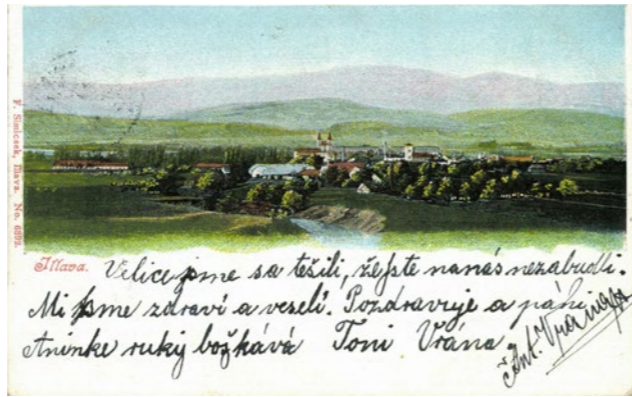 F. Simicsek, Illava. No. 6892.
Illava.
Velice jsme sa těšili, že jste nanás nezabudli.
Mi jsme zdraví a veselí. Pozdravuje a páni
Aninke ruký božkává Toni Vrána.
Ant. Vrana